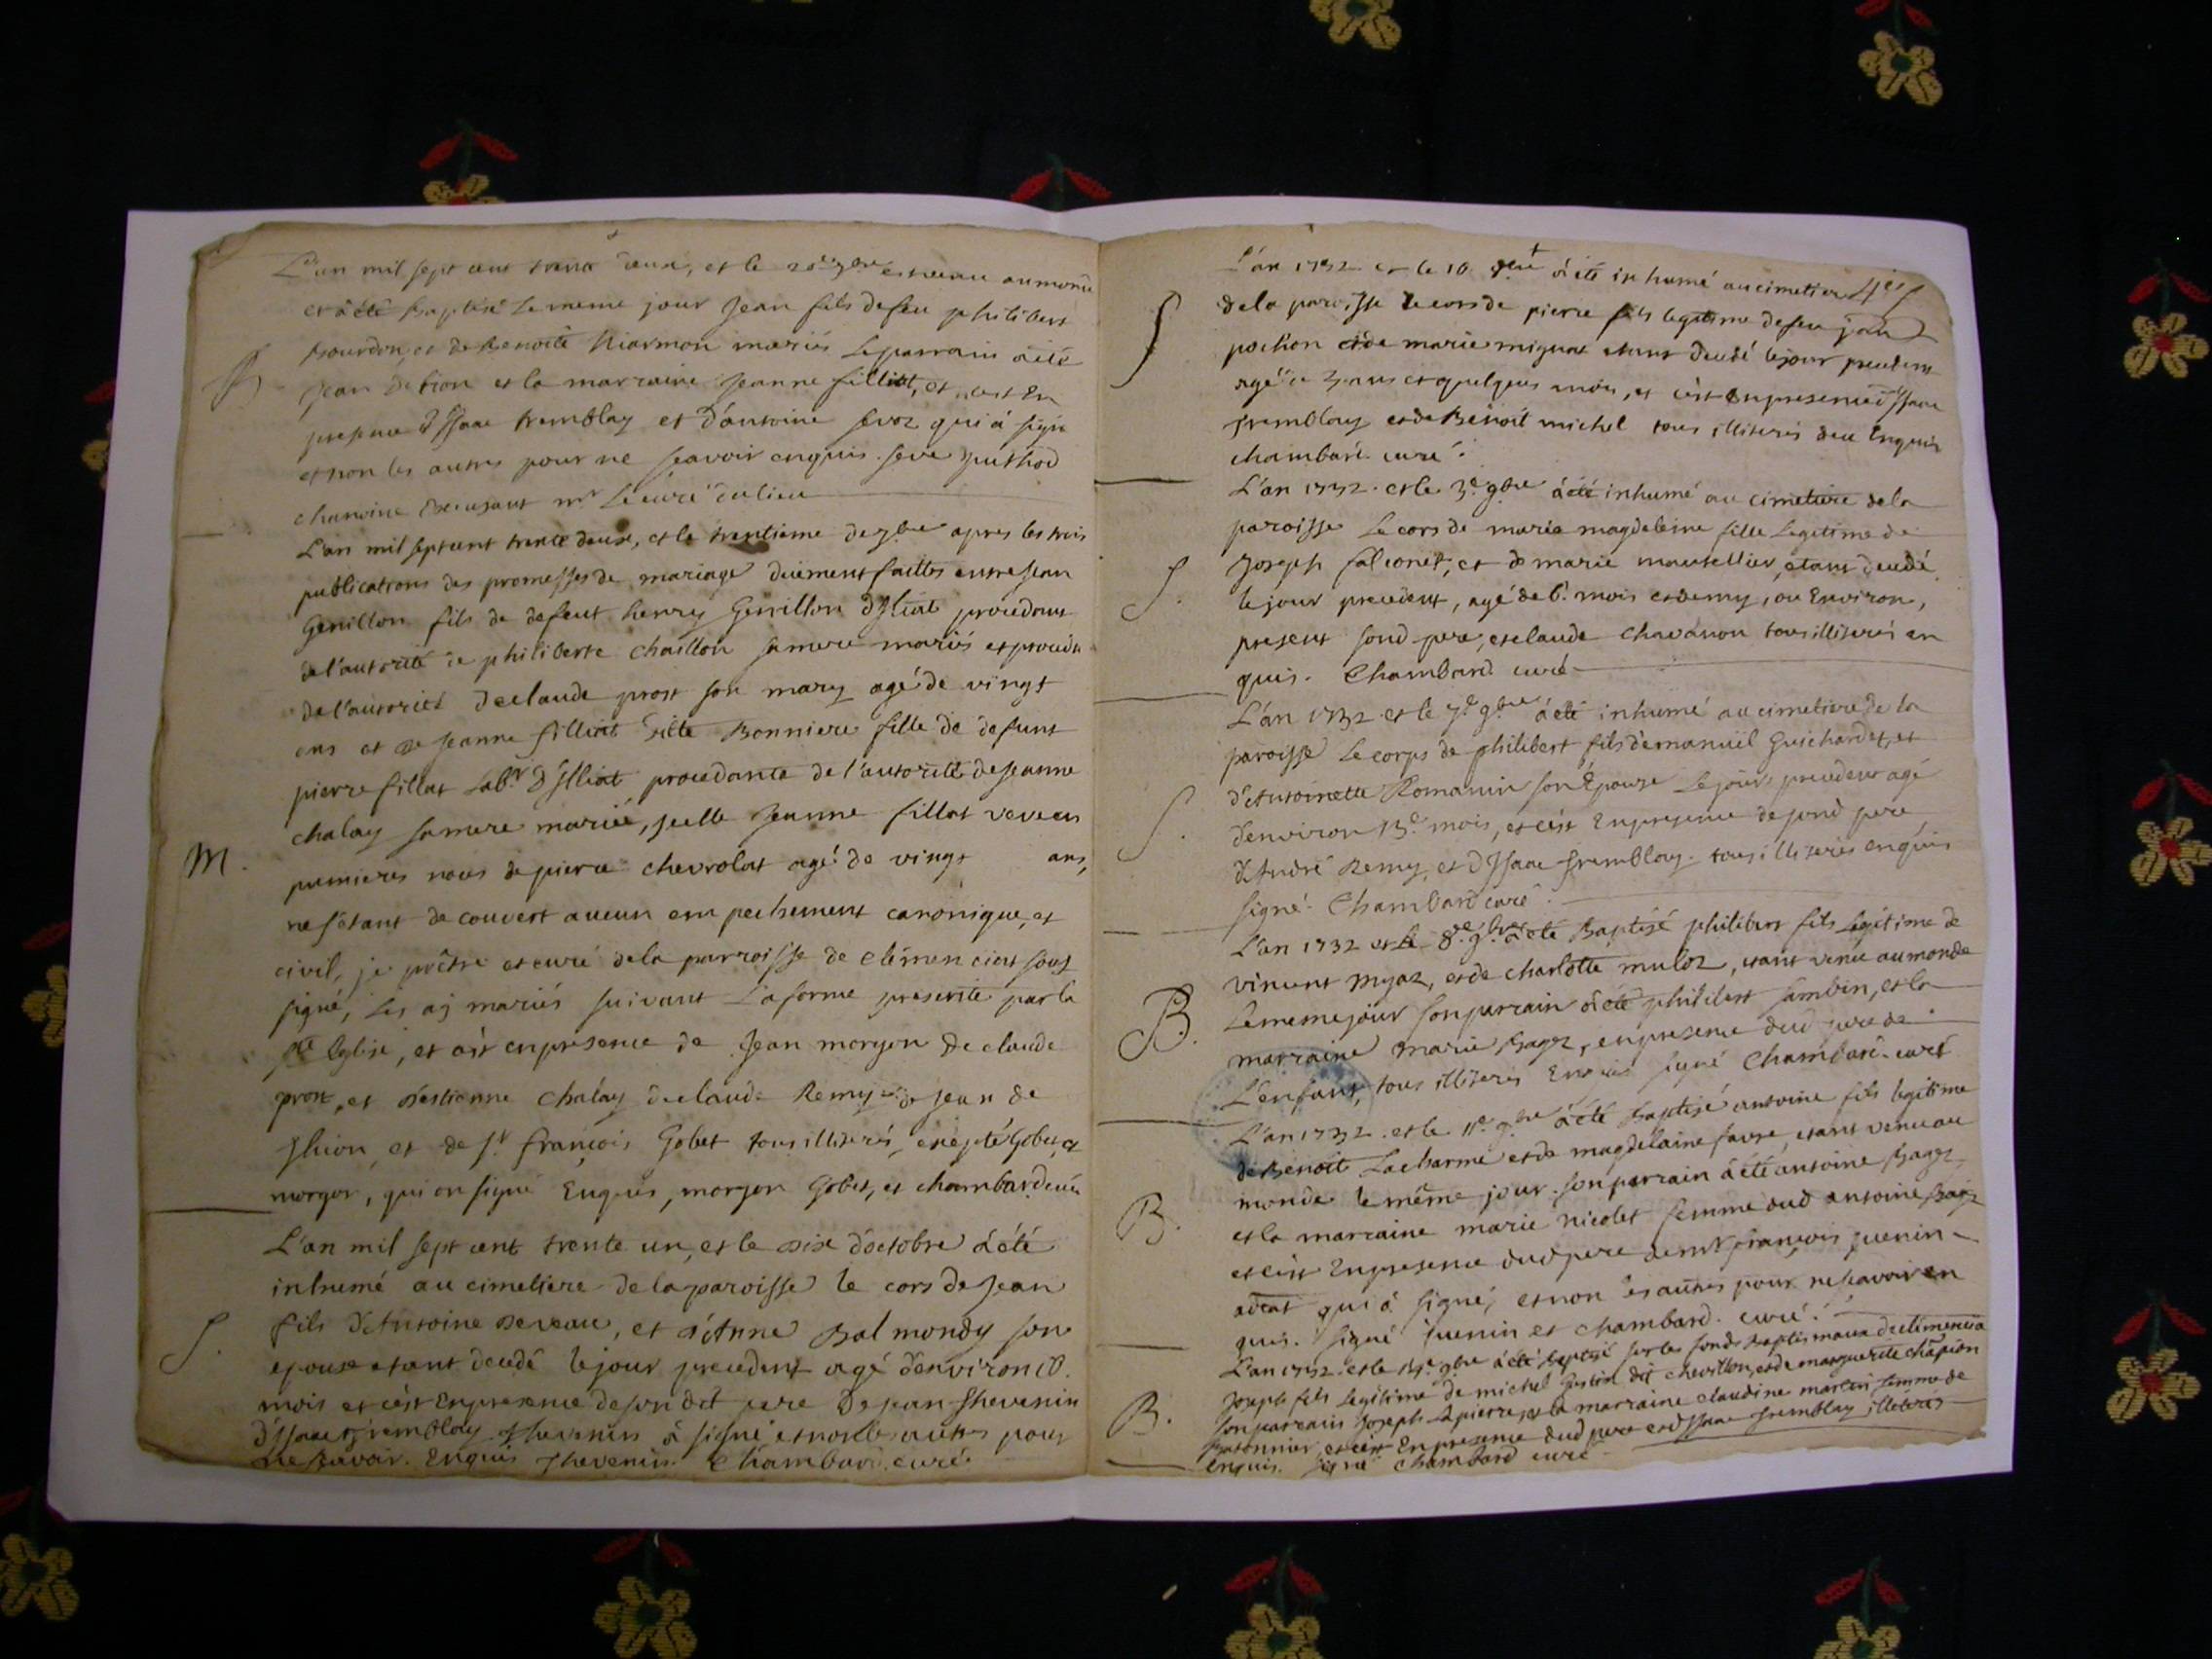 L'an mil sept cent trente deux, et le 20e 7bre est venu au monde
et à été Baptisé le meme jour Jean fils de feu philibert
B
Bourdon, et de Benoîte Niarmon mariés le parrain a été
Jean et la marraine Jeanne filliat, et c'est En
presence d'Isaac tremblay et d'antoine sevoz qui a signé
et non les autres pour ne sçavoir enquis. puthod
chanoine Excusant mr Le curé du lieu
L'an mil sept cent trente deux, et le trentieme de 7bre apres les trois
publications des promesses de mariage duement faittes entre Jean
Genillon fils de defeut henry Genillon d'Illiat procedant
de l'autorité de philiberte Chaillon sa mere mariés et procedn
de l'autorité de claude prost son mary agé de vingt
ans et de Jeanne filliat ditte Bonniere fille de defunt
pierre fillat labr. d'Illiat procedante de l'autorité de Jeanne
M.
chalay sa mere mariée, jcelle Jeanne fillat veve en
premieres noces de pierre chevrolat agé de vingt ans,
ne s'étant decouvert aucun empechement canonique, et
civil, je prêtre et curé de la parroisse de clémenciat sous
signé, les aj mariés suivant la forme prescritte par la
ste Eglise, et c'ést en presence de Jean morgon de claude
prost, et d'estienne Chalay de claude Remy et de Jean de
thion, et de sr. françois Gobet tous illiterés, exepté Gobet, et
morgon, qui on signé Enquis, morgon Gobet, et chambard curé
L'an mil sept cent trente un, et le dix d'octobre à été
inhumé au cimetiere de la paroisse le cors de Jean
S.
fils d'Antoine Deveau, et d'Anne Balmondy son
epouse etant decedé le jour precedent agé d'environ 18.
mois et c'est En presence de son dit pere De Jean thevenin
d'Isaac tremblay thevenin à signé et non les autres pour
ne sçavoir. Enquis thevenin. Chambard curé.
L'an 1732. et le 16 à été inhumé au cimetiere
S
de la paroisse le cors de pierre fils legitime de feu jean
pochon et de marie mignat etant decedé le jour precedent
agé de 3 ans et quelques mois, et c'est en presence d'Isaac
tremblay et de Benoit michel tous illiterés deu Enquis
chambard curé.
L'an 1732. et le 3e. 9bre à été inhumé au cimetiere de la
paroisse le cors de marie magdeleine fille legitime de
S.
Joseph falconet, et de marie mantellier, etant decedé
le jour precedent, agé de 6. mois et demy, ou Environ,
present son d. pere, et claude Chavanon tous illiterés en
quis. Chambard curé
L'an 1732 et le 7e. 9bre à été inhumé au cimetiere de la
paroisse le corps de philibert fils d'emanuël Guichardet, et
S.
d'Antoinette Romanin son Epouse le jour precedent agé
d'environ 13e. mois, et c'est En presence de son d pere
d'André Remy, et d'Isaac tremblay. tous illiterés enquis
signé. Chambard curé.
L'an 1732 et le 8e. 9bre à été Baptisé philibert fils legitime de
B.
vincent myaz, et de charlotte muloz, etant venu au monde
le meme jour son parrain à été philibert sambin, et la
marraine marie Bagez, en presence dud. pere de
L'enfant, tous illiterés Enquis signé Chambard. curé
L'an 1732. et le 11e. 9bre à été Baptisé antoine fils legitime
de Benoit Lacharme et de magdelaine favre, etant venu au
B.
monde le même jour. son parrain à été antoine Bagez
et la marraine marie nicolet femme dud antoine Bagez
et c'est En presence dud pere de mr françois juenin
advcat qui à signé, et non les autres pour ne sçavoir en
quis. signé juenin et chambard. curé.
L'an 1732. et le 9bre à été Baptisé sur les fonds baptismaux de clemencia
B.
Joseph fils legitime de michel Gustin dit chevillon, et de marguerite châpion
son parrain Joseph Lapierre, et la marraine claudine martin femme de
Batonnier, et c'est En presence dud pere et d'Isaac tremblay illiterés
Enquis. signé chambard curé